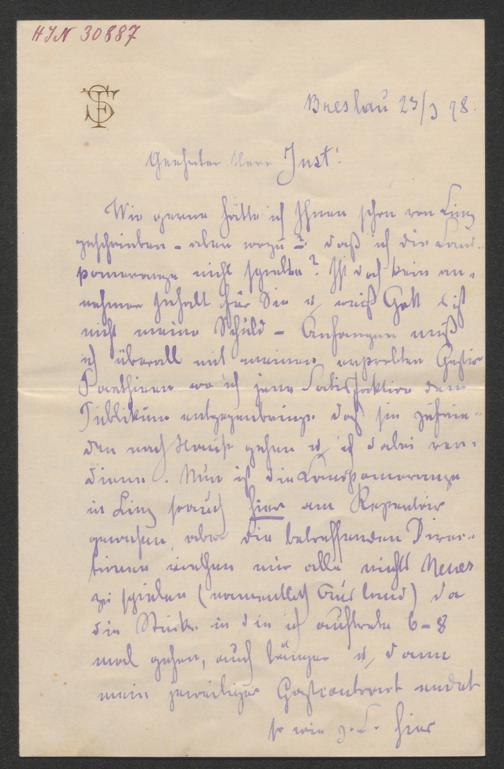 HIN 30887
Breslau 23/3 98.
Geehrter Herr Just!
Wie gerne hätte ich Ihnen schon von Linz
geschrieben – aber wozu –? daß ich die Land-
pomeranze nicht spielte? Ist doch kein an-
nehmer Inhalt für Sie u. weiß Gott es ist
nicht meine Schuld – Anfangen muß
ich überall mit meinen erprobten
wo ich jene Satisfaktion dem
Publikum entgegenbringe daß sie zufrie-
den nach Hause gehen u. ich dabei ver-
diene. Nun ist die Landpomeranze
in Linz sowie auch hier am Repertoir
gewesen, aber die betreffenden Direc-
tionen riethen mir alle nichts Neues
zu spielen (namentlich) da
die Stücke in die ich auftrete 6–8
mal gehen, auch länger u. dann
mein jeweiliger Gastcontract endet
so wie z. B. hier